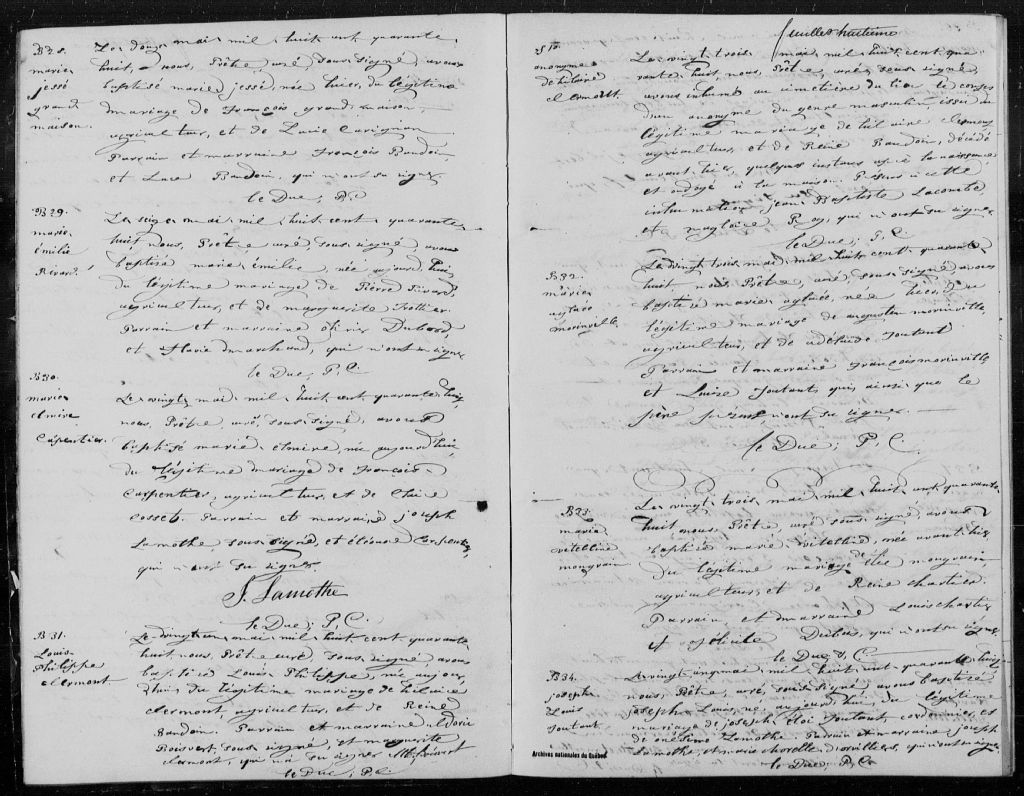 B28.
marie
jessé
grand
maison.
Le douze mai mil huit cent quarante
huit, nous, Prêtre, curé sous-signé, avons
baptisé marie jessé, née hier, du légitime
mariage de François grand-maison,
agriculteur, et de Lucie Carignan
Parrain et marraine François Baudoin
et Luce Baudoin, qui n'ont su signer
le Duc; P.C.
B29.
marie
émilie
Rivard.
Le seize mai mil huit cent quarante
huit nous, Prêtre curé sous-signé, avons
baptisé marie émilie, née aujourd'hui,
du légitime mariage de Pierre Rivard,
agriculteur, et de marguerite Trottier.
Parrain et marraine Dubord
et Flavie marchand, qui n'ont su signer
le Duc, P.C.
B30.
marie
elmire
Carpentier.
Le vingt mai mil huit cent quarante huit,
nous, Prêtre, curé, sous-signé, avons
baptisé marie elmire, née aujourd'hui
du légitime mariage de François
Carpentier, agriculteur, et de
cosset. Parrain et marraine joseph
Lamothe sous-signé, et éléonore Carpentier,
qui n'a su signer
J. Lamothe
le Duc; P.C.
B31.
Louis
Philippe
clermont
Le vingt un mai mil huit cent quarante
huit nous, Prêtre curé sous-signé, avons
baptisé Louis Philippe, né aujour-
d'hui du légitime mariage de hilaire
clermont, agriculteur, et de Reine
Baudoin. Parrain et marraine
Boisvert, sous-signé, et marguerite
clermont, qui n'a su signer Boisvert
le Duc; P.C.
feuillet huitième
S 10.
anonyme
de hilaire
clermont.
Le vingt trois mai mil huit cent qua-
rante huit, nous, Prêtre, curé sous-signé,
avons inhumé au cimetière du lieu le corps
d'un anonyme du genre masculin issu du
légitime mariage de hilaire clermont
agriculteur, et de Reine Baudoin, décédé
avant hier, quelques instans après la naissance
et ondoyé à la maison. Présens à cette
inhumation jean Baptiste Lacombe
et magloire Roy, qui n'ont su signer
le Duc; P.C.
B32.
marie
aglaée
morinville
Le vingt trois mai mil huit cent quarante
huit nous Prêtre, curé, sous-signé, avons
baptisé marie aglaée née hier, du
légitime mariage de augustin morinville,
agriculteur, et de adélaïde Toutant
Parrain et marraine François morinville
et Luize Toutant, qui, ainsi que le
père présent, n'ont su signer.
le Duc; P.C.
B33.
marie
vitelline
mongrain
Le vingt trois mai mil huit cent quarante
huit nous, Prêtre, curé sous-signé, avons
baptisé marie née avant hier
du légitime mariage de élie mongrain
agriculteur, et de Reine chartier.
Parrain, et marraine Louis chartier
et Dubois, qui n'ont su signer
le Duc P.C.
B34.
joseph
Louis
Toutant
Le vingt cinq mai mil huit cent quarante huit,
nous, Prêtre, curé, sous-signé avons baptisé
joseph Louis, né aujourd'hui, du légitime
mariage de joseph éloi Toutant cordonnier et
de Lamothe Parrain et marraine joseph
Lamothe, et marie qui n'ont su signer
le Duc; P.C.
Archives nationales du Québec